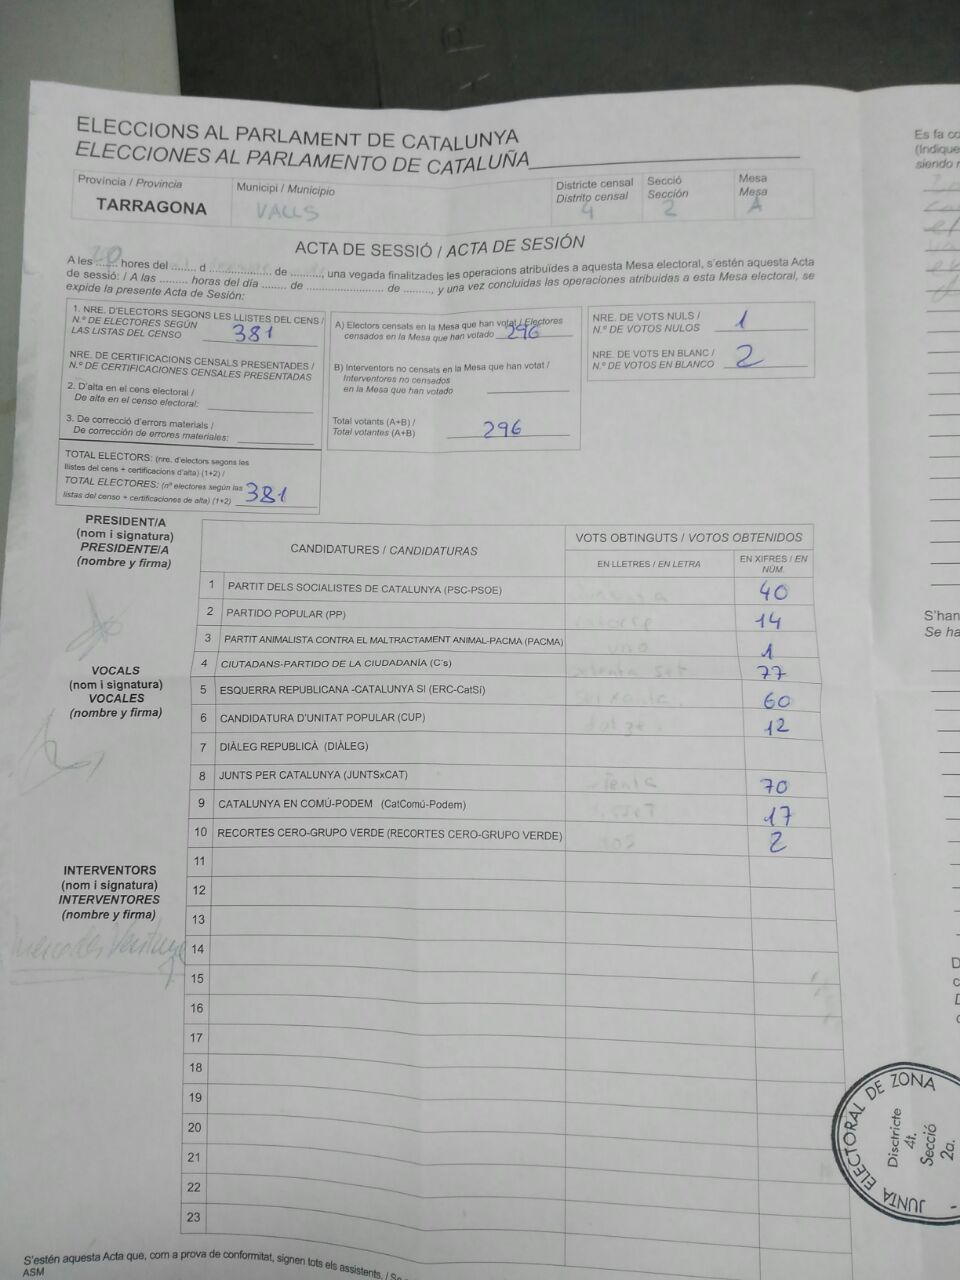 ELECCIONS AL PARLAMENT DE CATALUNYA
ELECCIONES AL PARLAMENTO DE CATALUÑA
Província / Provincia
TARRAGONA
Municipi / Municipio
VALLS
Districte censal
Distrito censal
4
Secció
Sección
2
Mesa
Mesa
A
ACTA DE SESSIÓ / ACTA DE SESIÓN
A les 20 hores del ........ d .................... de .........., una vegada finalitzades les operacions atribuïdes a aquesta Mesa electoral, s'estén aquesta Acta
de sessió: / A las ......... horas del día ........ de ........................ de ........, y una vez concluidas las operaciones atribuidas a esta Mesa electoral, se
expide la presente Acta de Sesión:
1. NRE. D'ELECTORS SEGONS LES LLISTES DEL CENS /
N.º DE ELECTORES SEGÚN
LAS LISTAS DEL CENSO 381
NRE. DE CERTIFICACIONS CENSALS PRESENTADES /
N.º DE CERTIFICACIONES CENSALES PRESENTADAS
2. D'alta en el cens electoral /
De alta en el censo electoral:
3. De correcció d'errors materials /
De corrección de errores materiales:
TOTAL ELECTORS: (nre. d'electors segons les
llistes del cens + certificacions d'alta) (1+2) /
TOTAL ELECTORES: (nº electores según las
listas del censo + certificaciones de alta) (1+2) 381
A) Electors censats en la Mesa que han votat / Electores
censados en la Mesa que han votado 296
B) Interventors no censats en la Mesa que han votat /
Interventores no censados
en la Mesa que han votado
Total votants (A+B) /
Total votantes (A+B) 296
NRE. DE VOTS NULS /
N.º DE VOTOS NULOS 1
NRE. DE VOTS EN BLANC /
N.º DE VOTOS EN BLANCO 2
PRESIDENT/A
(nom i signatura)
PRESIDENTE/A
(nombre y firma)
VOCALS
(nom i signatura)
VOCALES
(nombre y firma)
INTERVENTORS
(nom i signatura)
INTERVENTORES
(nombre y firma)
CANDIDATURES / CANDIDATURAS
VOTS OBTINGUTS / VOTOS OBTENIDOS
EN LLETRES / EN LETRA
EN XIFRES / EN
NÚM.
1 PARTIT DELS SOCIALISTES DE CATALUNYA (PSC-PSOE) 40
2 PARTIDO POPULAR (PP) 14
3 PARTIT ANIMALISTA CONTRA EL MALTRACTAMENT ANIMAL-PACMA (PACMA) uno 1
4 CIUTADANS-PARTIDO DE LA CIUDADANÍA (C's) 77
5 ESQUERRA REPUBLICANA -CATALUNYA SI (ERC-CatSí) 60
6 CANDIDATURA D'UNITAT POPULAR (CUP) 12
7 DIÀLEG REPUBLICÀ (DIÀLEG)
8 JUNTS PER CATALUNYA (JUNTSxCAT) 70
9 CATALUNYA EN COMÚ-PODEM (CatComú-Podem) 17
10 RECORTES CERO-GRUPO VERDE (RECORTES CERO-GRUPO VERDE) 2
11
12
13
14
15
16
17
18
19
20
21
22
23
S'estén aquesta Acta que, com a prova de conformitat, signen tots els assistents.
ASM
Es fa co
(Indique
siendo
S'han
Se ha
JUNTA ELECTORAL DE ZONA
Disctricte
4t.
Secció
2a.